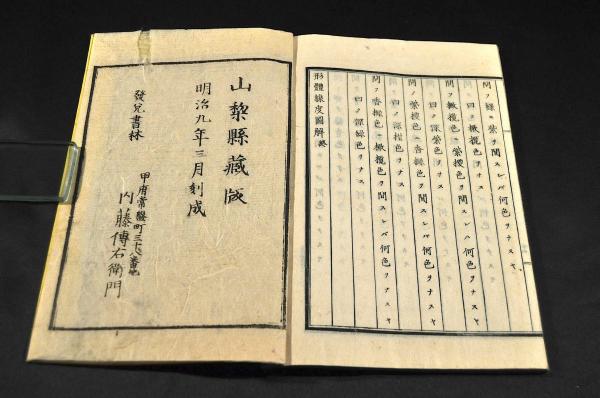 問フ緑ト紫ヲ間スレバ何色ヲナスヤ
曰フ橄欖色ヲナス
問フ橄欖色ト紫榠色ヲ間スレバ何色ヲナスヤ
曰フ深紫色ヲナス
問フ紫榠色ト香緑色ヲ間スレバ何色ヲナスヤ
曰フ深榠色ヲナス
問フ香緑色ト橄欖色ヲ間スレバ何色ヲナスヤ
曰フ深緑色ヲナス
形體線度圖解終
山梨縣藏版
明治九年三月刻成
發兌書林
甲府常盤町三十八番地
内藤傳右衛門